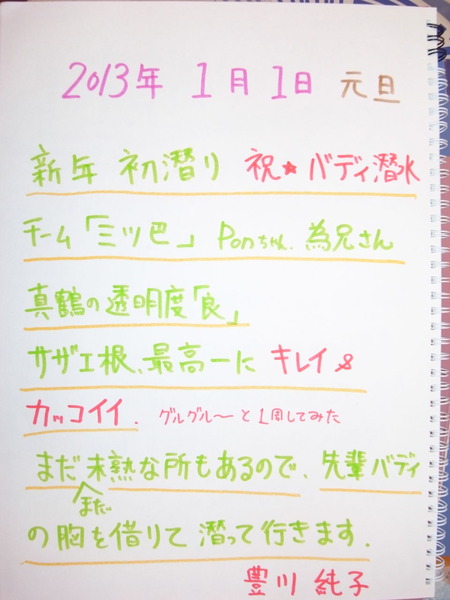 2013年 1月1日 元旦
新年 初潜り 祝★バディ潜水
チーム「三ツ巴」 Ponちゃん、為兄さん
真鶴の透明度「良」
サザエ根、最高ーに キレイ&
カッコイイ. グルグル〜と1周してみた
まだ未熟な所もあるので、先輩バディ
まだ
の胸を借りて 潜って行きます.
豊川 純子